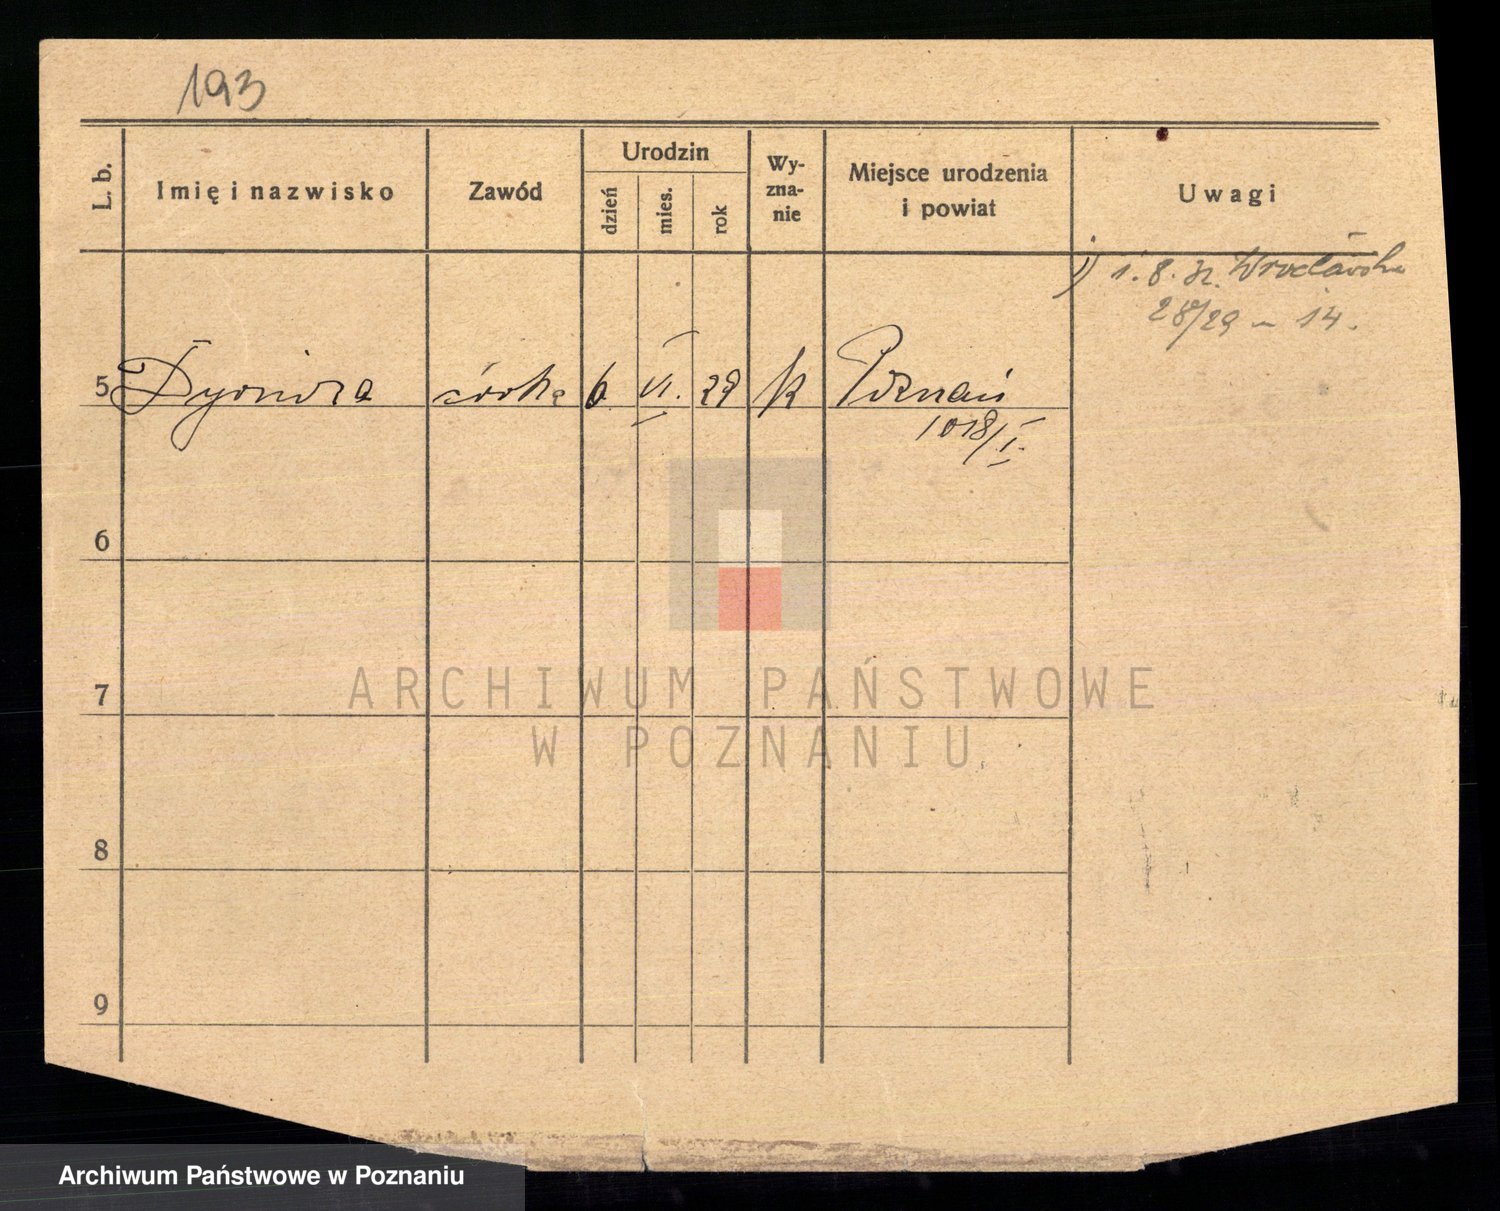 193
L. b.
Imię i nazwisko
Zawód
Urodzin
dzień
mies.
rok
Wy-
zna-
nie
Miejsce urodzenia
i powiat
Uwagi
1) 1. 8. 32. Wrocławska
28/29 – 14.
5 córka 6. VI. 29 k Poznań
1018/I.
6
7
8
9
ARCHIWUM PAŃSTWOWE
W POZNANIU
Archiwum Państwowe w Poznaniu